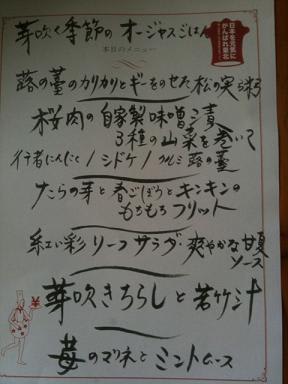 芽吹く季節の オージャスごはん
本日のメニュー
日本を元気に
がんばれ東北
蕗の薹のカリカリとギーをのせた松の実お粥
桜肉の自家製味噌漬
3種の山菜を巻いて
行者にんにく/シドケ/クルミ蕗の薹
たらの芽と春ごぼうとキンキンの
もちもちフリット
紅い彩リーフサラダ・爽やかな甘夏
ソース
芽吹きちらしと若竹汁
苺のマリネとミントムース